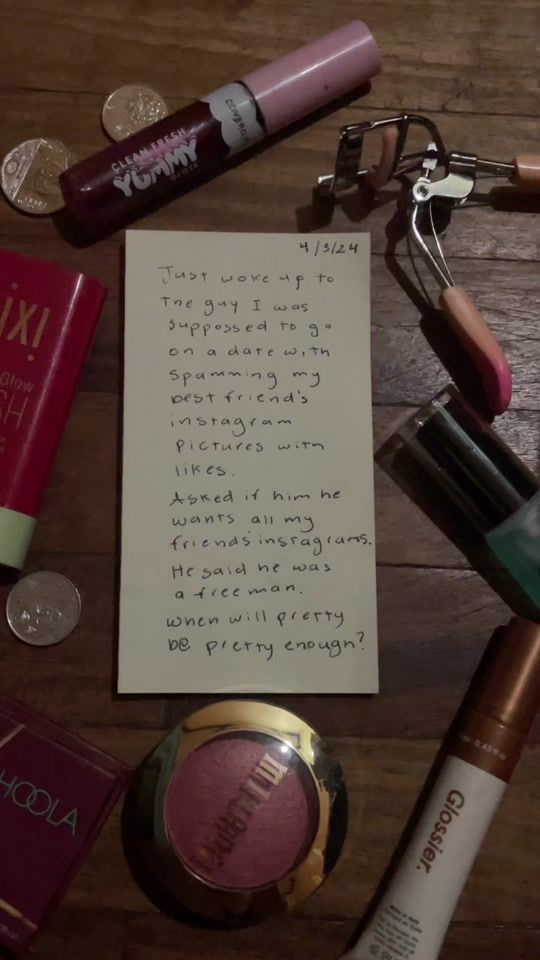 CLEAN FRESH
YUMMY
GLOSS
COVERGIRL
4/3/24
Just woke up to
the guy I was
suppossed to go
on a date with
spamming my
best friend's
instagram
pictures with
likes.
Asked if him he
wants all my
friends' instagrams.
He said he was
a free man.
When will pretty
be pretty enough?
PIXI
Glow
HOOLA
MILANI
Glossier.
0.45 fl oz